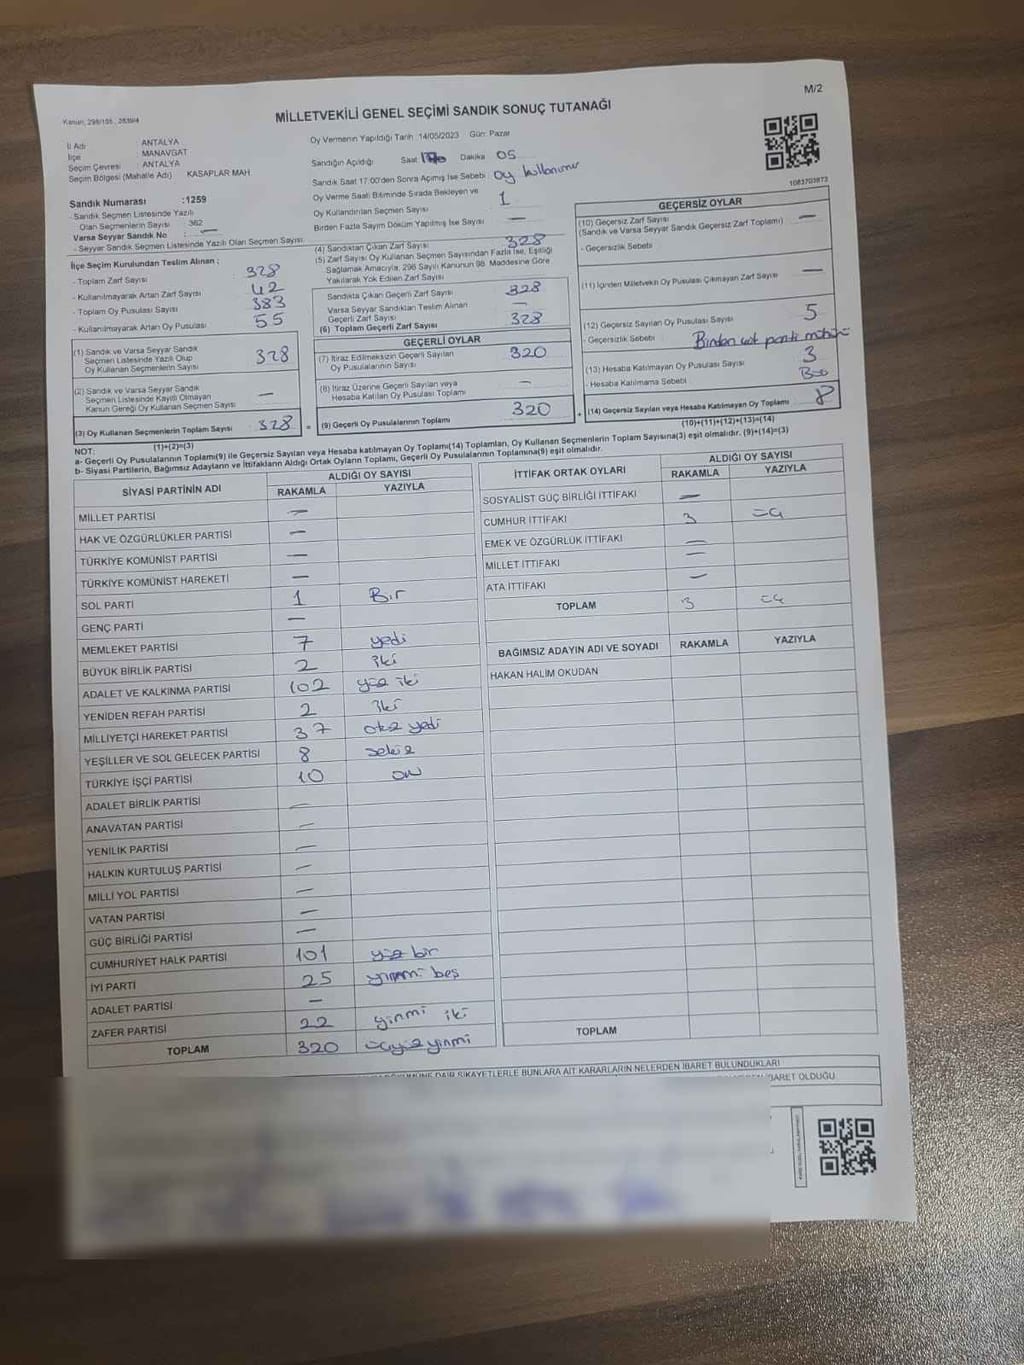 M/2
Kanun; 298/105 , 2839/4
MİLLETVEKİLİ GENEL SEÇİMİ SANDIK SONUÇ TUTANAĞI
İl Adı ANTALYA
İlçe : MANAVGAT
Seçim Çevresi : ANTALYA
Seçim Bölgesi (Mahalle Adı) KASAPLAR MAH
Sandık Numarası :1259
- Sandık Seçmen Listesinde Yazılı
Olan Seçmenlerin Sayısı 362
Varsa Seyyar Sandık No : —
- Seyyar Sandık Seçmen Listesinde Yazılı Olan Seçmen Sayısı
Oy Vermenin Yapıldığı Tarih :14/05/2023 Gün: Pazar
Sandığın Açıldığı Saat Dakika 05
Sandık Saat 17.00'den Sonra Açılmış İse Sebebi : oy kullanımı
Oy Verme Saati Bitiminde Sırada Bekleyen ve
Oy Kullandırılan Seçmen Sayısı 1
Birden Fazla Sayım Döküm Yapılmış İse Sayısı —
1083703873
İlçe Seçim Kurulundan Teslim Alınan ;
- Toplam Zarf Sayısı : 328
- Kullanılmayarak Artan Zarf Sayısı : 42
- Toplam Oy Pusulası Sayısı : 383
- Kullanılmayarak Artan Oy Pusulası : 55
(1) Sandık ve Varsa Seyyar Sandık
Seçmen Listesinde Yazılı Olup
Oy Kullanan Seçmenlerin Sayısı 328
(2) Sandık ve Varsa Seyyar Sandık
Seçmen Listesinde Kayıtlı Olmayan
Kanun Gereği Oy Kullanan Seçmen Sayısı —
(3) Oy Kullanan Seçmenlerin Toplam Sayısı 328
(1)+(2)=(3)
(4) Sandıktan Çıkan Zarf Sayısı 328
(5) Zarf Sayısı Oy Kullanan Seçmen Sayısından Fazla İse, Eşitliği
Sağlamak Amacıyla, 298 Sayılı Kanunun 98. Maddesine Göre
Yakılarak Yok Edilen Zarf Sayısı
Sandıkta Çıkan Geçerli Zarf Sayısı 328
Varsa Seyyar Sandıktan Teslim Alınan
Geçerli Zarf Sayısı —
(6) Toplam Geçerli Zarf Sayısı 328
GEÇERLİ OYLAR
(7) İtiraz Edilmeksizin Geçerli Sayılan
Oy Pusulasının Sayısı 320
(8) İtiraz Üzerine Geçerli Sayılan veya
Hesaba Katılan Oy Pusulası Toplamı —
(9) Geçerli Oy Pusulalarının Toplamı 320
GEÇERSİZ OYLAR
(10) Geçersiz Zarf Sayısı
(Sandık ve Varsa Seyyar Sandık Geçersiz Zarf Toplamı) —
- Geçersizlik Sebebi
(11) İçinden Milletvekili Oy Pusulası Çıkmayan Zarf Sayısı —
(12) Geçersiz Sayılan Oy Pusulası Sayısı 5
- Geçersizlik Sebebi Birden çok parti
(13) Hesaba Katılmayan Oy Pusulası Sayısı 3
- Hesaba Katılmama Sebebi Boş
(14) Geçersiz Sayılan veya Hesaba Katılmayan Oy Toplamı 8
(10)+(11)+(12)+(13)=(14)
NOT:
a- Geçerli Oy Pusulalarının Toplamı(9) ile Geçersiz Sayılan veya Hesaba katılmayan Oy Toplamı(14) Toplamları, Oy Kullanan Seçmenlerin Toplam Sayısına(3) eşit olmalıdır. (9)+(14)=(3)
b- Siyasi Partilerin, Bağımsız Adayların ve İttifakların Aldığı Ortak Oyların Toplamı, Geçerli Oy Pusulalarının Toplamına(9) eşit olmalıdır.
SİYASİ PARTİNİN ADI ALDIĞI OY SAYISI
RAKAMLA YAZIYLA
MİLLET PARTİSİ —
HAK VE ÖZGÜRLÜKLER PARTİSİ —
TÜRKİYE KOMÜNİST PARTİSİ —
TÜRKİYE KOMÜNİST HAREKETİ —
SOL PARTİ 1 Bir
GENÇ PARTİ —
MEMLEKET PARTİSİ 7 yedi
BÜYÜK BİRLİK PARTİSİ 2 iki
ADALET VE KALKINMA PARTİSİ 102 yüz iki
YENİDEN REFAH PARTİSİ 2 iki
MİLLİYETÇİ HAREKET PARTİSİ 37 otuz yedi
YEŞİLLER VE SOL GELECEK PARTİSİ 8 sekiz
TÜRKİYE İŞÇİ PARTİSİ 10 on
ADALET BİRLİK PARTİSİ —
ANAVATAN PARTİSİ —
YENİLİK PARTİSİ —
HALKIN KURTULUŞ PARTİSİ —
MİLLİ YOL PARTİSİ —
VATAN PARTİSİ —
GÜÇ BİRLİĞİ PARTİSİ —
CUMHURİYET HALK PARTİSİ 101 yüz bir
İYİ PARTİ 25 yirmi beş
ADALET PARTİSİ —
ZAFER PARTİSİ 22 yirmi iki
TOPLAM 320 üçyüz yirmi
İTTİFAK ORTAK OYLARI ALDIĞI OY SAYISI
RAKAMLA YAZIYLA
SOSYALİST GÜÇ BİRLİĞİ İTTİFAKI —
CUMHUR İTTİFAKI 3 üç
EMEK VE ÖZGÜRLÜK İTTİFAKI —
MİLLET İTTİFAKI —
ATA İTTİFAKI —
TOPLAM 3 üç
BAĞIMSIZ ADAYIN ADI VE SOYADI RAKAMLA YAZIYLA
HAKAN HALİM OKUDAN
TOPLAM
DAİR ŞİKAYETLERLE BUNLARA AİT KARARLARIN NELERDEN İBARET BULUNDUKLARI
İBARET OLDUĞU